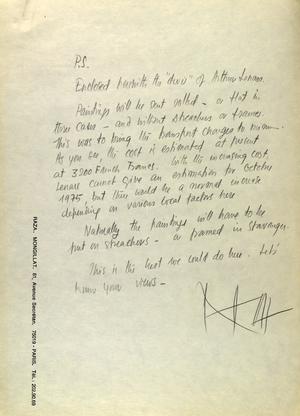 P.S.
Enclosed herewith the "devis" of Arthur Lenars.
Paintings will be sent rolled - or flat in
three cases - and without streachers or frames.
This was to bring the transport charges to minimum.
As you see, the cost is estimated at present
at 3200 French Francs. With the increasing cost,
Lenars cannot give an estimation for October
1975, but there would be a normal increase
depending on various local factors here
Naturally the paintings will have to be
put on streachers - or framed in Stavanger.
This is the best we could do here. Let's
know your views -
RAZA. MONGILLAT. 81, Avenue Secrétan. 75019 - PARIS. Tél.: 202.90.69